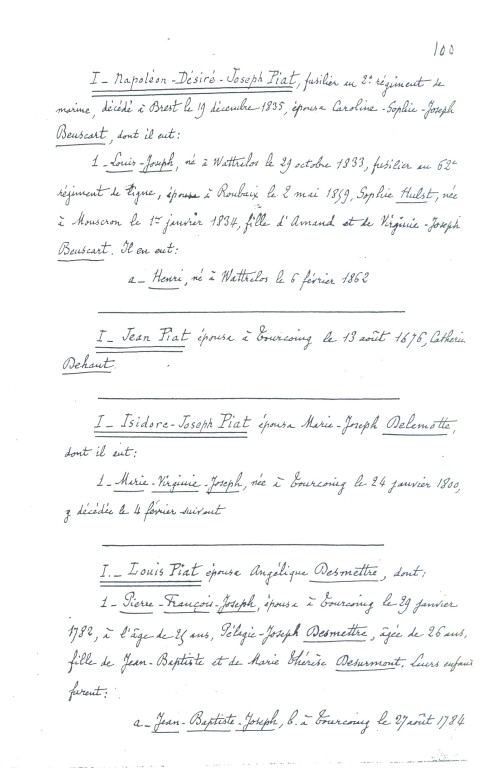 100
I - Napoléon-Désiré-Joseph Piat, fusilier au 2e régiment de
marine, décédé à Brest le 19 décembre 1835, épousa Caroline-Sophie-Joseph
Beuscart, dont il eut :
1 - Louis-Joseph, né à Wattrelos le 29 octobre 1833, fusilier au 62e
régiment de ligne, épousa à Roubaix le 2 mai 1859, Sophie Hulst, née
à Mouscron le 1er janvier 1834, fille d'Amand et de Virginie-Joseph
Beuscart. Il en eut :
a - Henri, né à Wattrelos le 6 février 1862
I - Jean Piat épousa à Tourcoing le 13 août 1676, Catherine
Dehaut.
I - Isidore-Joseph Piat épousa Marie-Joseph Delemotte,
dont il eut :
1 - Marie-Virginie-Joseph, née à Tourcoing le 24 janvier 1800,
y décédée le 4 février suivant
I. - Louis Piat épousa Angélique Desmettre, dont :
1 - Pierre-François-Joseph, épousa à Tourcoing le 29 janvier
1782, à l'âge de 25 ans, Pélagie-Joseph Desmettre, âgée de 26 ans,
fille de Jean-Baptiste et de Marie Thérèse Desurmont. Leurs enfants
furent :
a - Jean-Baptiste-Joseph, b. à Tourcoing le 27 août 1784